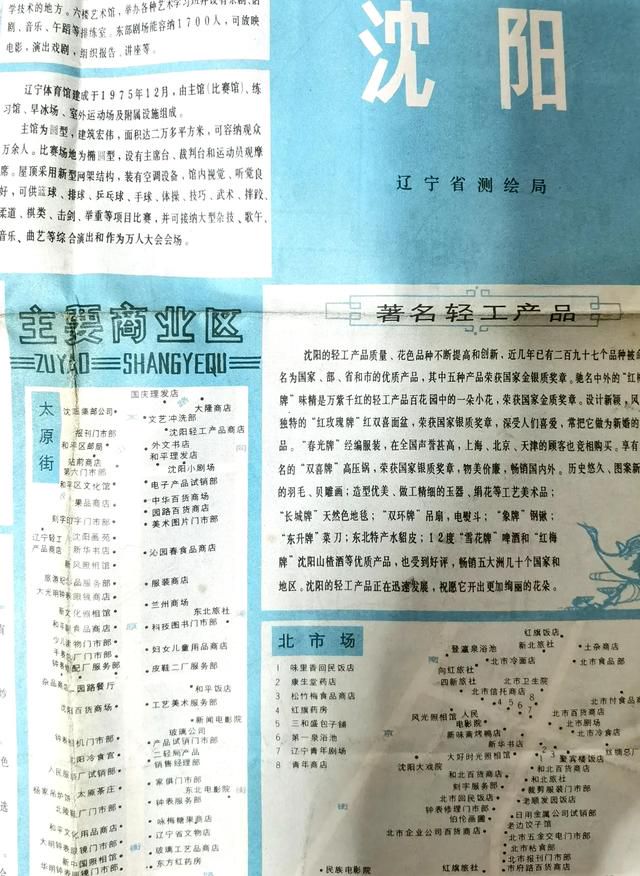 学技术的地方。六楼艺术馆，举办各种艺术学习班并设有京剧、
剧、音乐、午蹈等排练室。东部剧场能容纳1700人，可放映
电影，演出戏剧，组织报告、讲座等。
辽宁体育馆建成于1975年12月，由主馆(比赛馆)、练
习馆、旱冰场、室外运动场及附属设施组成。
主馆为圆型，建筑宏伟，面积达二万多平方米，可容纳观众
万余人。比赛场地为椭圆型，设有主席台、裁判台和运动员观摩
席。屋顶采用新型网架结构，装有空调设备，馆内视觉、听觉良
好，可供篮球、排球、乒乓球、手球、体操、技巧、武术、摔跤、
柔道、棋类、击剑、举重等项目比赛，并可接纳大型杂技、歌午、
音乐、曲艺等综合演出和作为万人大会会场。
沈阳
辽宁省测绘局
主要商业区
ZUYAO SHANGYEQU
太原街
国庆理发店
沈阳集邮公司
大隆商店
文艺冲洗部
报刊门市部
沈阳轻工产品商店
和平区邮局
外文书店
和平理发店
站前商店
沈阳小剧场
第六门市部
和平区文化馆
电子产品试销部
果品商店
中华百货商场
园路百货商店
刻字印字门市部
美术图片门市部
沈阳画苑
辽宁轻工
产品商店
新华书店
沁园春食品商店
新风照相馆
服务部
服装商店
大光明钟表眼镜商店
兰州商场
新文化照相馆
东北旅社
和平副食品商店
科技图书门市部
门市部
妇女儿童用品商店
厂门市部
钟表修配厂服务部
皮鞋二厂服务部
杂品商店
园路餐厅
和平饭店
沈阳百货商场
工艺美术服务部
新闻电影院
玻璃公司
产品试销门市部
门市部
二轻局产品
销售经理部
沈阳冷食宫
试销部
家俱门市部
太原茶庄
东北电影院
杨家吊炉饼
钟表服务部
厂门市部
咏梅糖果商店
和平文化用品商店
辽宁省文物店
门市部
玻璃工艺品商店
新中国照相馆
东方红药房
门市部
著名轻工产品
沈阳的轻工产品质量、花色品种不断提高和创新，近几年已有二百九十七个品种被命
名为国家、部、省和市的优质产品，其中五种产品荣获国家金银质奖章。驰名中外的“红梅
牌”味精是万紫千红的轻工产品百花园中的一朵小花，荣获国家金质奖章。设计新颖，风
独特的“红玫瑰牌”红双喜面盆，荣获国家银质奖章，深受人们喜爱，常把它做为新婚的
品。“春光牌”经编服装，在全国声誉甚高，上海、北京、天津的顾客也竞相购买。享有
名的“双喜牌”高压锅，荣获国家银质奖章，物美价廉，畅销国内外。历史悠久、图案新
的羽毛、贝雕画；造型优美、做工精细的玉器、绢花等工艺美术品；
“长城牌”天然色地毯；“双环牌”吊扇，电熨斗；“象牌”钢锹；
“东升牌”菜刀；东北特产水貂皮；12度“雪花牌”啤酒和“红梅
牌”沈阳山楂酒等优质产品，也受到好评，畅销五大洲几十个国家和
地区。沈阳的轻工产品正在迅速发展，祝愿它开出更加绚丽的花朵。
北市场
1 味里香回民饭店
2 康生堂药店
3 松竹梅食品商店
4 红旗药房
5 三和盛包子铺
6 第一泉浴池
7 辽宁青年剧场
8 青年商店
红旗饭店
新北旅社
登瀛泉浴池
土杂商店
南
北市冷面店
北市食品部
向红旅社
四新旅社
北市卫生院
北市信托商店
8
7
4 5 6
北市付食品商
风光照相馆
人民
电影院
北市百货商店
北市剧场
京
新味斋烤鸭店
北市冷食店
新华书店
大好时光照相馆
1 2 3
聚宾楼饭店
丝绸总
沈阳大戏院
和北百货商店
和北旅社
刻字服务部
裁剪服装门市部
北市回民饭店
老顺发园饭店
街
钟表修理门市部
日用金属公司试销部
伯伦画廊
老边饺子馆
北市企业公司百货商店
北市五金交电门市部
北市粘食部
北市报刊门市部
民族电影院
红旗旅社
市府路百货商店